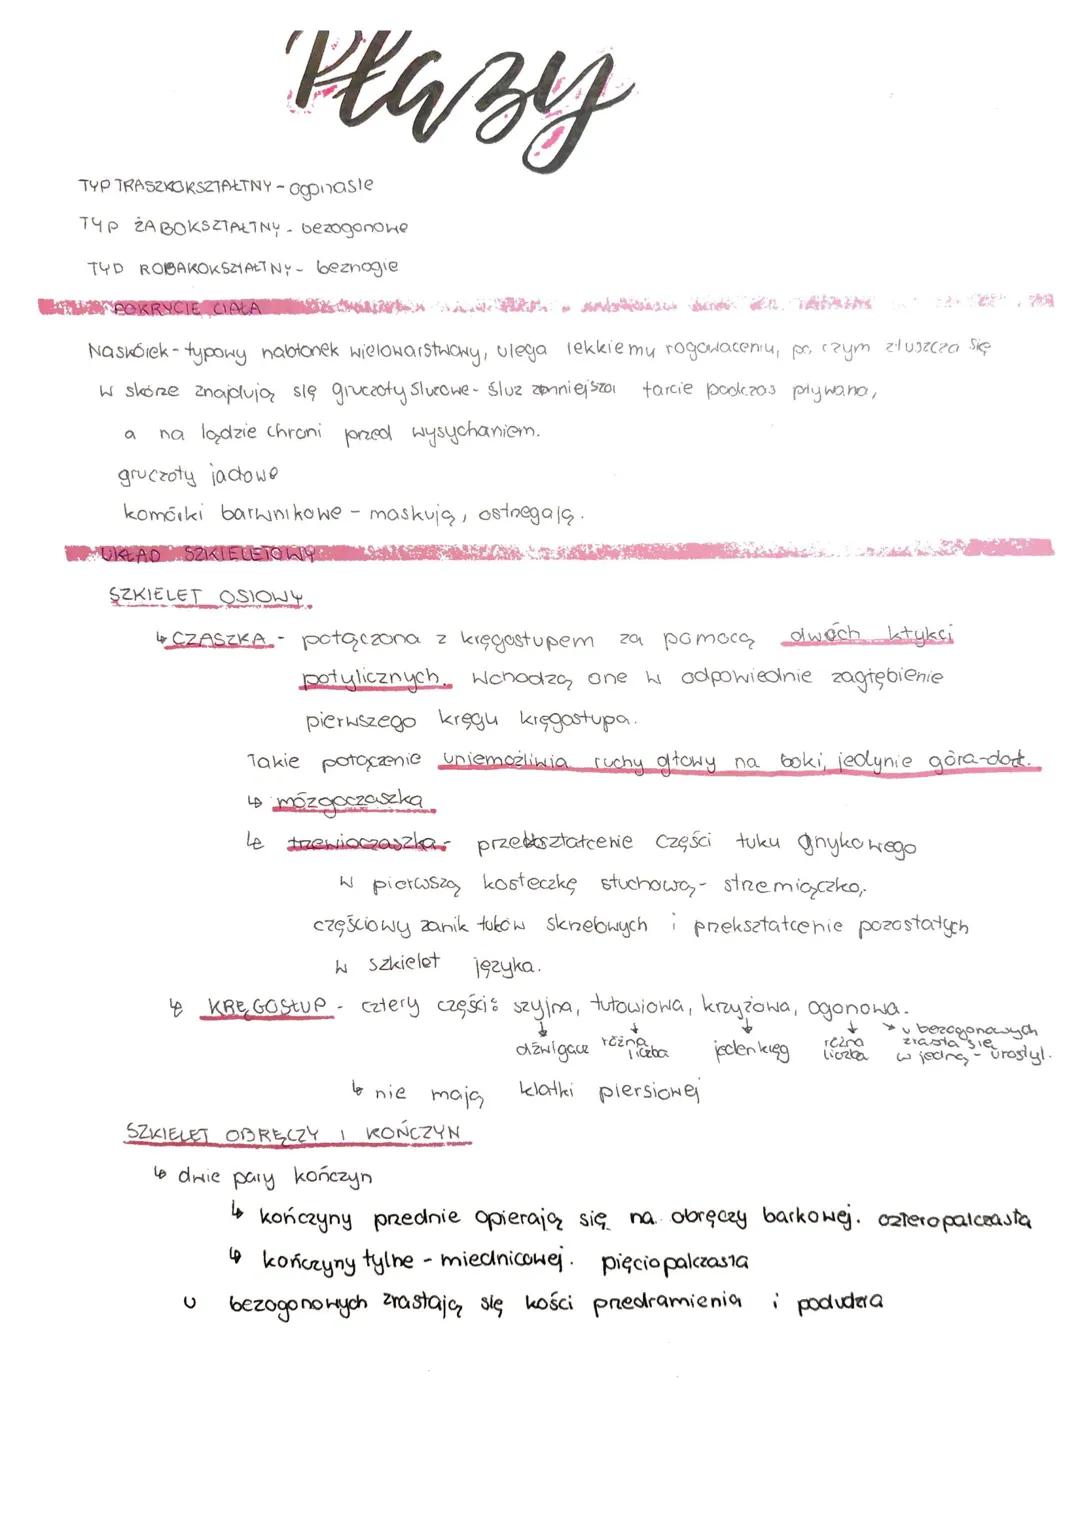 Płazy
TYP TRASZKOKSZTAŁTNY - ogoniaste
TYP ŻABOKSZTAŁTNY - bezogonowe
TYP ROBAKOKSZTAŁTNY - beznogie
POKRYCIE CIAŁA
Naskórek - typowy nabłonek wielowarstwowy, ulega lekkiemu rogowaceniu, po czym złuszcza się
W skórze znajdują się gruczoły śluzowe - śluz zmniejsza tarcie podczas pływana,
a na lądzie chroni przed wysychaniem.
gruczoły jadowe
komórki barwnikowe - maskują, ostrzegają.
UKŁAD SZKIELETOWY
SZKIELET OSIOWY
↳ CZASZKA - połączona z kręgosłupem za pomocą dwóch kłykci
potylicznych. Wchodzą one w odpowiednie zagłębienie
pierwszego kręgu kręgosłupa.
Takie połączenie uniemożliwia ruchy głowy na boki, jedynie góra-dół.
↳ mózgoczaszka
↳ trzewioczaszka - przekształcenie części łuku gnykowego
w pierwszą kosteczkę słuchową - strzemiączko,
częściowy zanik łuków skrzelowych i przekształcenie pozostałych
w szkielet języka.
↳ KRĘGOSŁUP - cztery części: szyjna, tułowiowa, krzyżowa, ogonowa.
dźwigacz różna liczba jeden kręg różna liczba u bezogonowych zrasta się w jedną - urostyl.
↳ nie mają klatki piersiowej
SZKIELET OBRĘCZY I KOŃCZYN
↳ dwie pary kończyn
↳ kończyny przednie opierają się na obręczy barkowej. czteropalczasta
↳ kończyny tylne - miednicowej. pięciopalczasta
U bezogonowych zrastają się kości przedramienia i podudzia